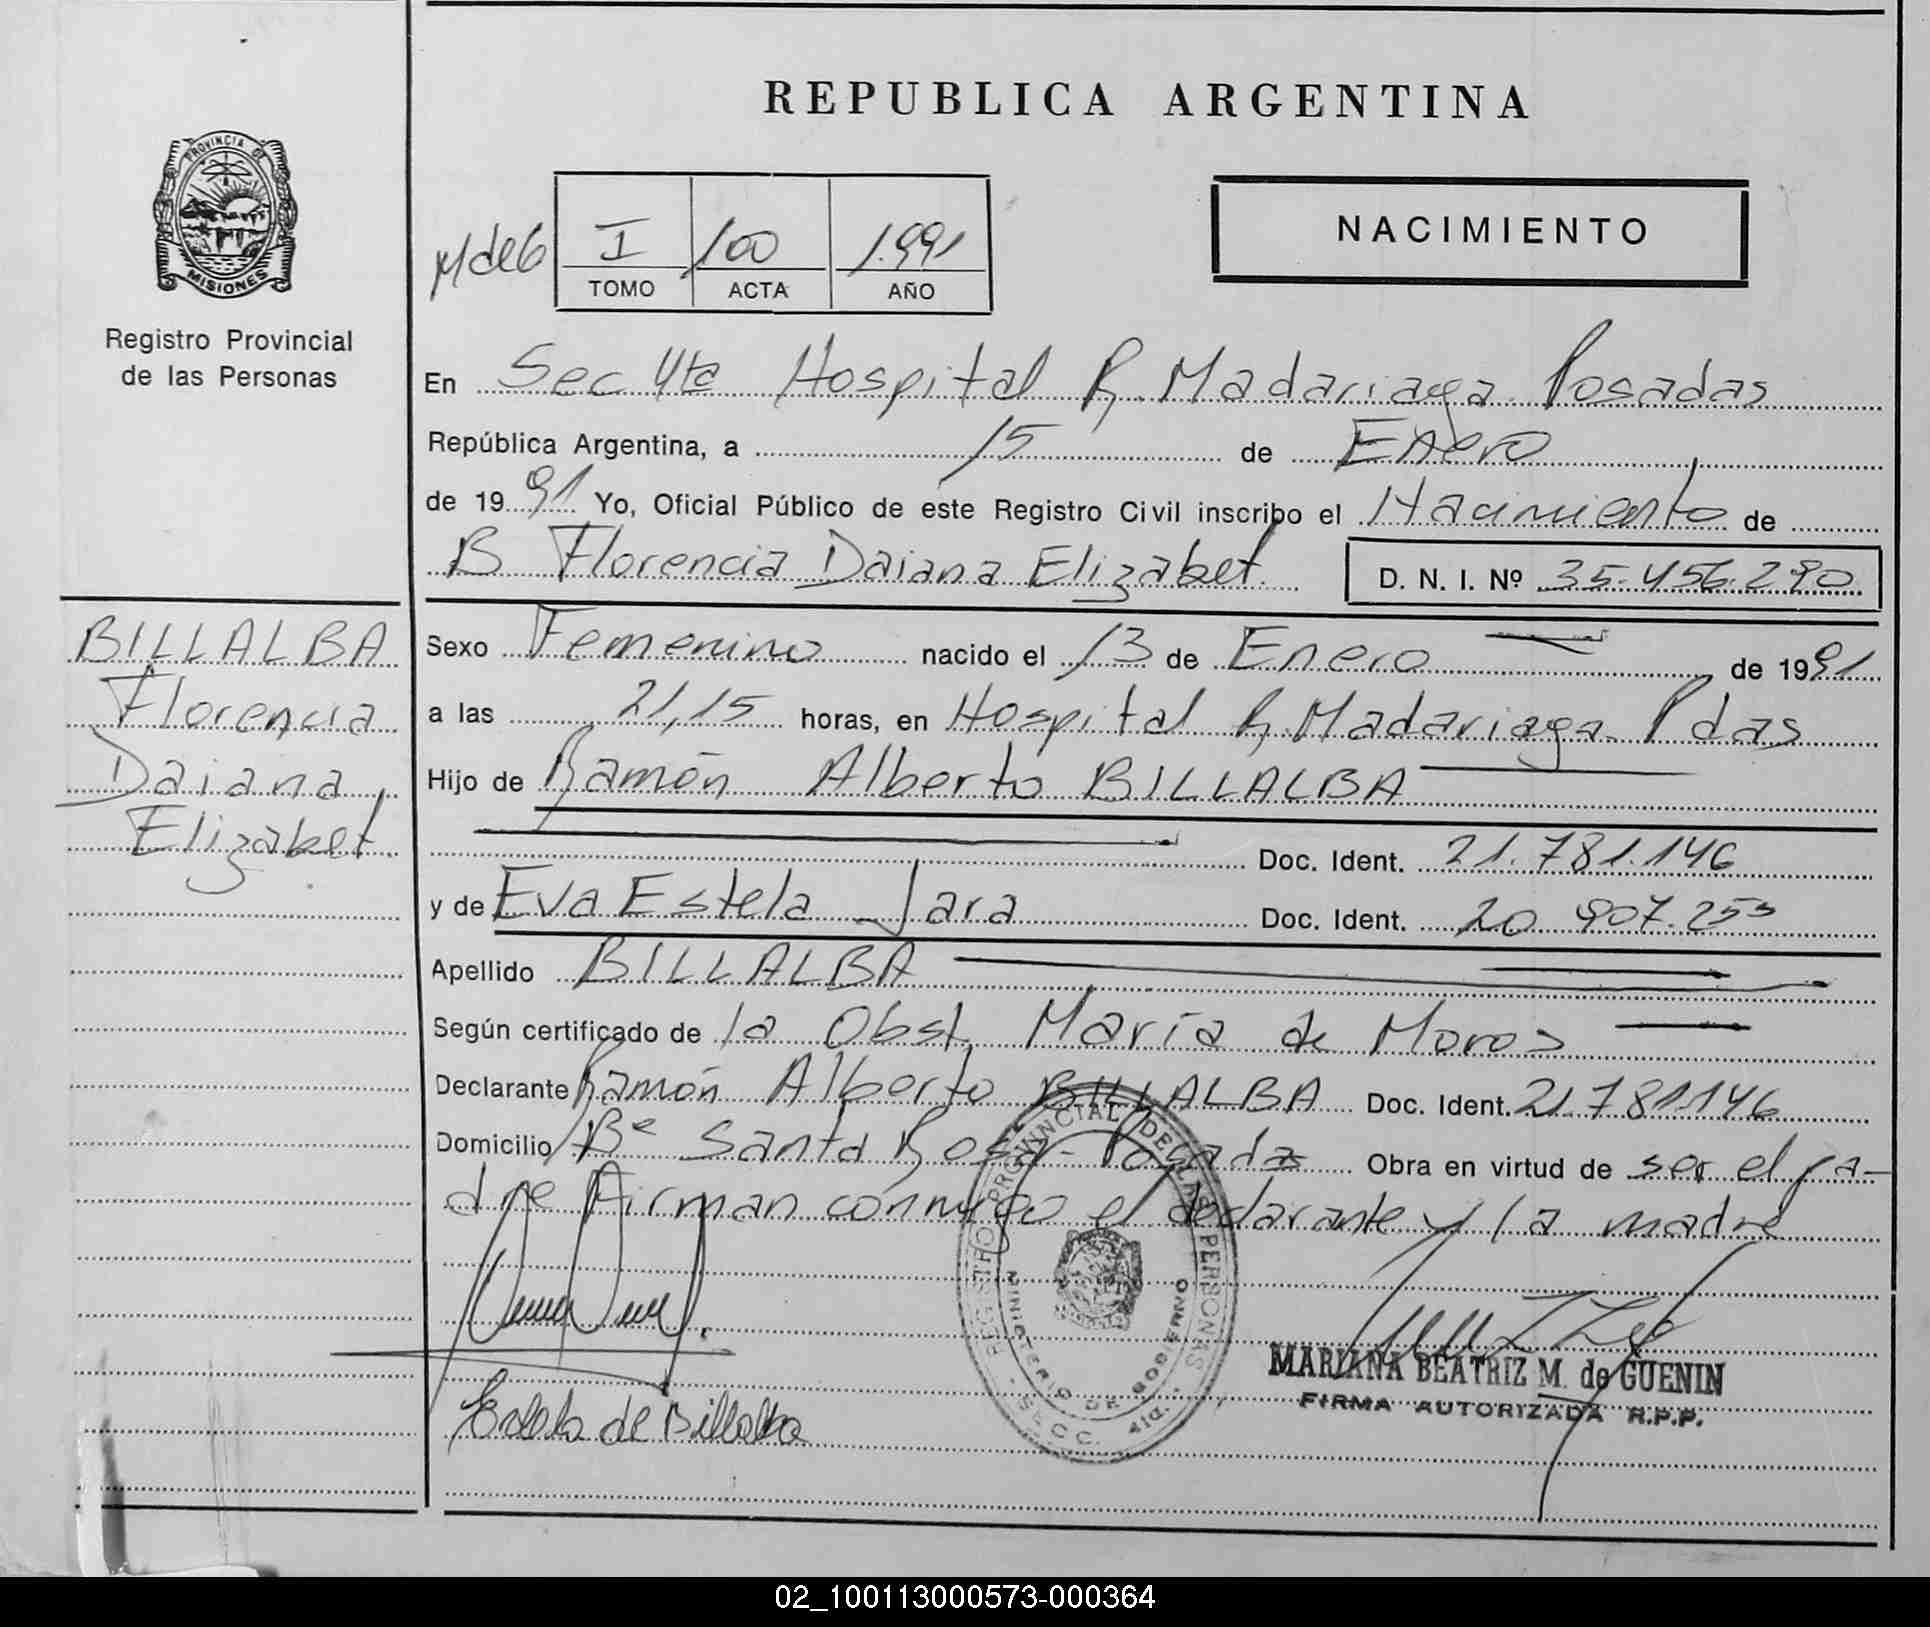 REPUBLICA ARGENTINA
PROVINCIA DE
MISIONES
Registro Provincial
de las Personas
M de G
I 100 1.991
TOMO ACTA AÑO
NACIMIENTO
En Sec 4ta Hospital R. Madariaga Posadas
República Argentina, a 15 de Enero
de 1991 Yo, Oficial Público de este Registro Civil inscribo el Nacimiento de
B Florencia Daiana Elizabet. D. N. I. Nº 35.456.290
BILLALBA
Florencia
Daiana
Elizabet.
Sexo Femenino nacido el 13 de Enero de 1991
a las 21,15 horas, en Hospital R. Madariaga. Pdas
Hijo de Ramón Alberto BILLALBA
Doc. Ident. 21.781.146
y de Eva Estela Jara Doc. Ident. 20 907.253
Apellido BILLALBA
Según certificado de la Obst. María de Moros
Declarante Ramón Alberto BILLALBA Doc. Ident. 21.781146
Domicilio Bº Santa Rosa - Posadas Obra en virtud de ser el pa-
dre Firman conmigo el declarante y la madre
REGISTRO PROVINCIAL DE LAS PERSONAS
MINISTERIO DE GOBIERNO
SECC. 4ta.
MARIANA BEATRIZ M. de GUENIN
FIRMA AUTORIZADA R.P.P.
de Billalba
02_100113000573-000364